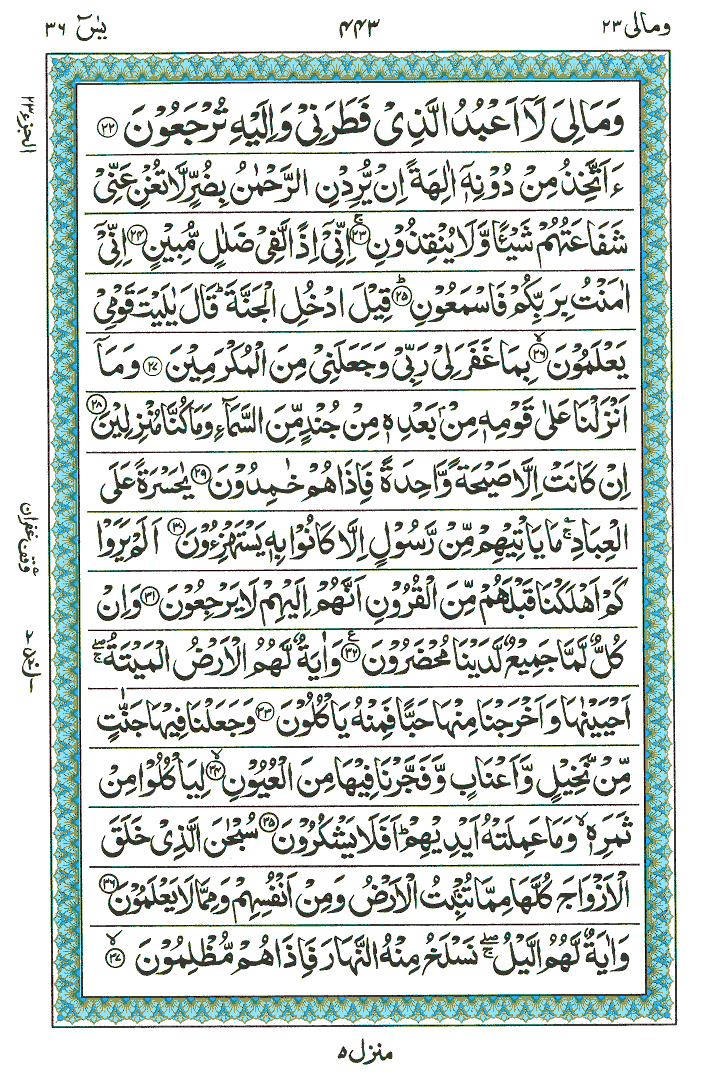 ومالی ٢٣
٤٤٣
یٰسٓ ٣٦
الجزء ٢٣
وَمَا لِیَ لَاۤ اَعْبُدُ الَّذِیْ فَطَرَنِیْ وَاِلَیْهِ تُرْجَعُوْنَ ﴿٢٢﴾
ءَاَتَّخِذُ مِنْ دُوْنِهٖۤ اٰلِهَةً اِنْ یُّرِدْنِ الرَّحْمٰنُ بِضُرٍّ لَّا تُغْنِ عَنِّیْ
شَفَاعَتُهُمْ شَیْـًٔا وَّلَا یُنْقِذُوْنِ ﴿٢٣﴾ۚ اِنِّیْۤ اِذًا لَّفِیْ ضَلٰلٍ مُّبِیْنٍ ﴿٢٤﴾ اِنِّیْۤ
اٰمَنْتُ بِرَبِّكُمْ فَاسْمَعُوْنِ ﴿٢٥﴾ؕ قِیْلَ ادْخُلِ الْجَنَّةَ ؕ قَالَ یٰلَیْتَ قَوْمِیْ
یَعْلَمُوْنَ ﴿٢٦﴾ۙ بِمَا غَفَرَ لِیْ رَبِّیْ وَجَعَلَنِیْ مِنَ الْمُكْرَمِیْنَ ﴿٢٧﴾ وَمَاۤ
اَنْزَلْنَا عَلٰی قَوْمِهٖ مِنْۢ بَعْدِهٖ مِنْ جُنْدٍ مِّنَ السَّمَآءِ وَمَا كُنَّا مُنْزِلِیْنَ ﴿٢٨﴾
اِنْ كَانَتْ اِلَّا صَیْحَةً وَّاحِدَةً فَاِذَا هُمْ خٰمِدُوْنَ ﴿٢٩﴾ یٰحَسْرَةً عَلَی
الْعِبَادِ ۚ مَا یَاْتِیْهِمْ مِّنْ رَّسُوْلٍ اِلَّا كَانُوْا بِهٖ یَسْتَهْزِءُوْنَ ﴿٣٠﴾ اَلَمْ یَرَوْا
كَمْ اَهْلَكْنَا قَبْلَهُمْ مِّنَ الْقُرُوْنِ اَنَّهُمْ اِلَیْهِمْ لَا یَرْجِعُوْنَ ﴿٣١﴾ وَاِنْ
كُلٌّ لَّمَّا جَمِیْعٌ لَّدَیْنَا مُحْضَرُوْنَ ﴿٣٢﴾ وَاٰیَةٌ لَّهُمُ الْاَرْضُ الْمَیْتَةُ ۖۚ
اَحْیَیْنٰهَا وَاَخْرَجْنَا مِنْهَا حَبًّا فَمِنْهُ یَاْكُلُوْنَ ﴿٣٣﴾ وَجَعَلْنَا فِیْهَا جَنّٰتٍ
مِّنْ نَّخِیْلٍ وَّاَعْنَابٍ وَّفَجَّرْنَا فِیْهَا مِنَ الْعُیُوْنِ ﴿٣٤﴾ۙ لِیَاْكُلُوْا مِنْ
ثَمَرِهٖ ۙ وَمَا عَمِلَتْهُ اَیْدِیْهِمْ ؕ اَفَلَا یَشْكُرُوْنَ ﴿٣٥﴾ سُبْحٰنَ الَّذِیْ خَلَقَ
الْاَزْوَاجَ كُلَّهَا مِمَّا تُنْۢبِتُ الْاَرْضُ وَمِنْ اَنْفُسِهِمْ وَمِمَّا لَا یَعْلَمُوْنَ ﴿٣٦﴾
وَاٰیَةٌ لَّهُمُ الَّیْلُ ۖۚ نَسْلَخُ مِنْهُ النَّهَارَ فَاِذَا هُمْ مُّظْلِمُوْنَ ﴿٣٧﴾ۙ
وقف غفران
منزل ٥